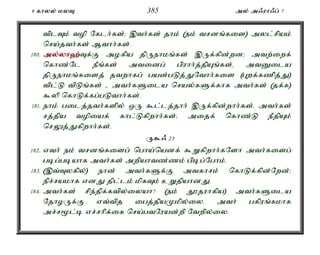 9 காலல் மலவு 385 அல் அஃராஃப் 7
விடவும் வழி கேடர்கள்; இவர்கள் தாம் (நம் வசனங்களை) அலட்சியம்
செய்தவர்கள் ஆவார்கள்.
180. அல்லாஹ்வுக்கு அழகிய திருநாமங்கள் இருக்கின்றன; அவற்றைக்
கொண்டே நீங்கள் அவனைப் பிரார்த்தியுங்கள், அவனுடைய
திருநாமங்களைத் தவறாகப் பயன்படுத்துவோர்களை (புறக்கணித்து)
விட்டு விடுங்கள் - அவர்களுடைய செயல்களுக்காக அவர்கள் (தக்க)
கூலி கொடுக்கப்படுவார்கள்.
181. நாம் படைத்தவர்களில் ஒரு கூட்டத்தார் இருக்கின்றார்கள், அவர்கள்
சத்திய வழியைக் காட்டுகிறார்கள்; அதைக் கொண்டு நீதியும்
செலுத்துகிறார்கள்.
ருகூஃ 23
182. எவர் நம் வசனங்களைப் பொய்யெனக் கூறுகிறார்களோ அவர்களைப்
படிப்படியாக அவர்கள் அறியாவண்ணம் பிடிப்போம்.
183. (இவ்வுலகில்) நான் அவர்களுக்கு அவகாசம் கொடுக்கின்றேன்;
நிச்சயமாக எனது திட்டம் மிகவும் உறுதியானது.
184. அவர்கள் சிந்திக்கவில்லையா? (நம் தூதராகிய) அவர்களுடைய
தோழருக்கு எவ்வித பைத்தியமுமில்லை. அவர் பகிரங்கமாக
அச்சமூட்டி எச்சரிக்கை செய்பவரேயன்றி வேறில்லை.